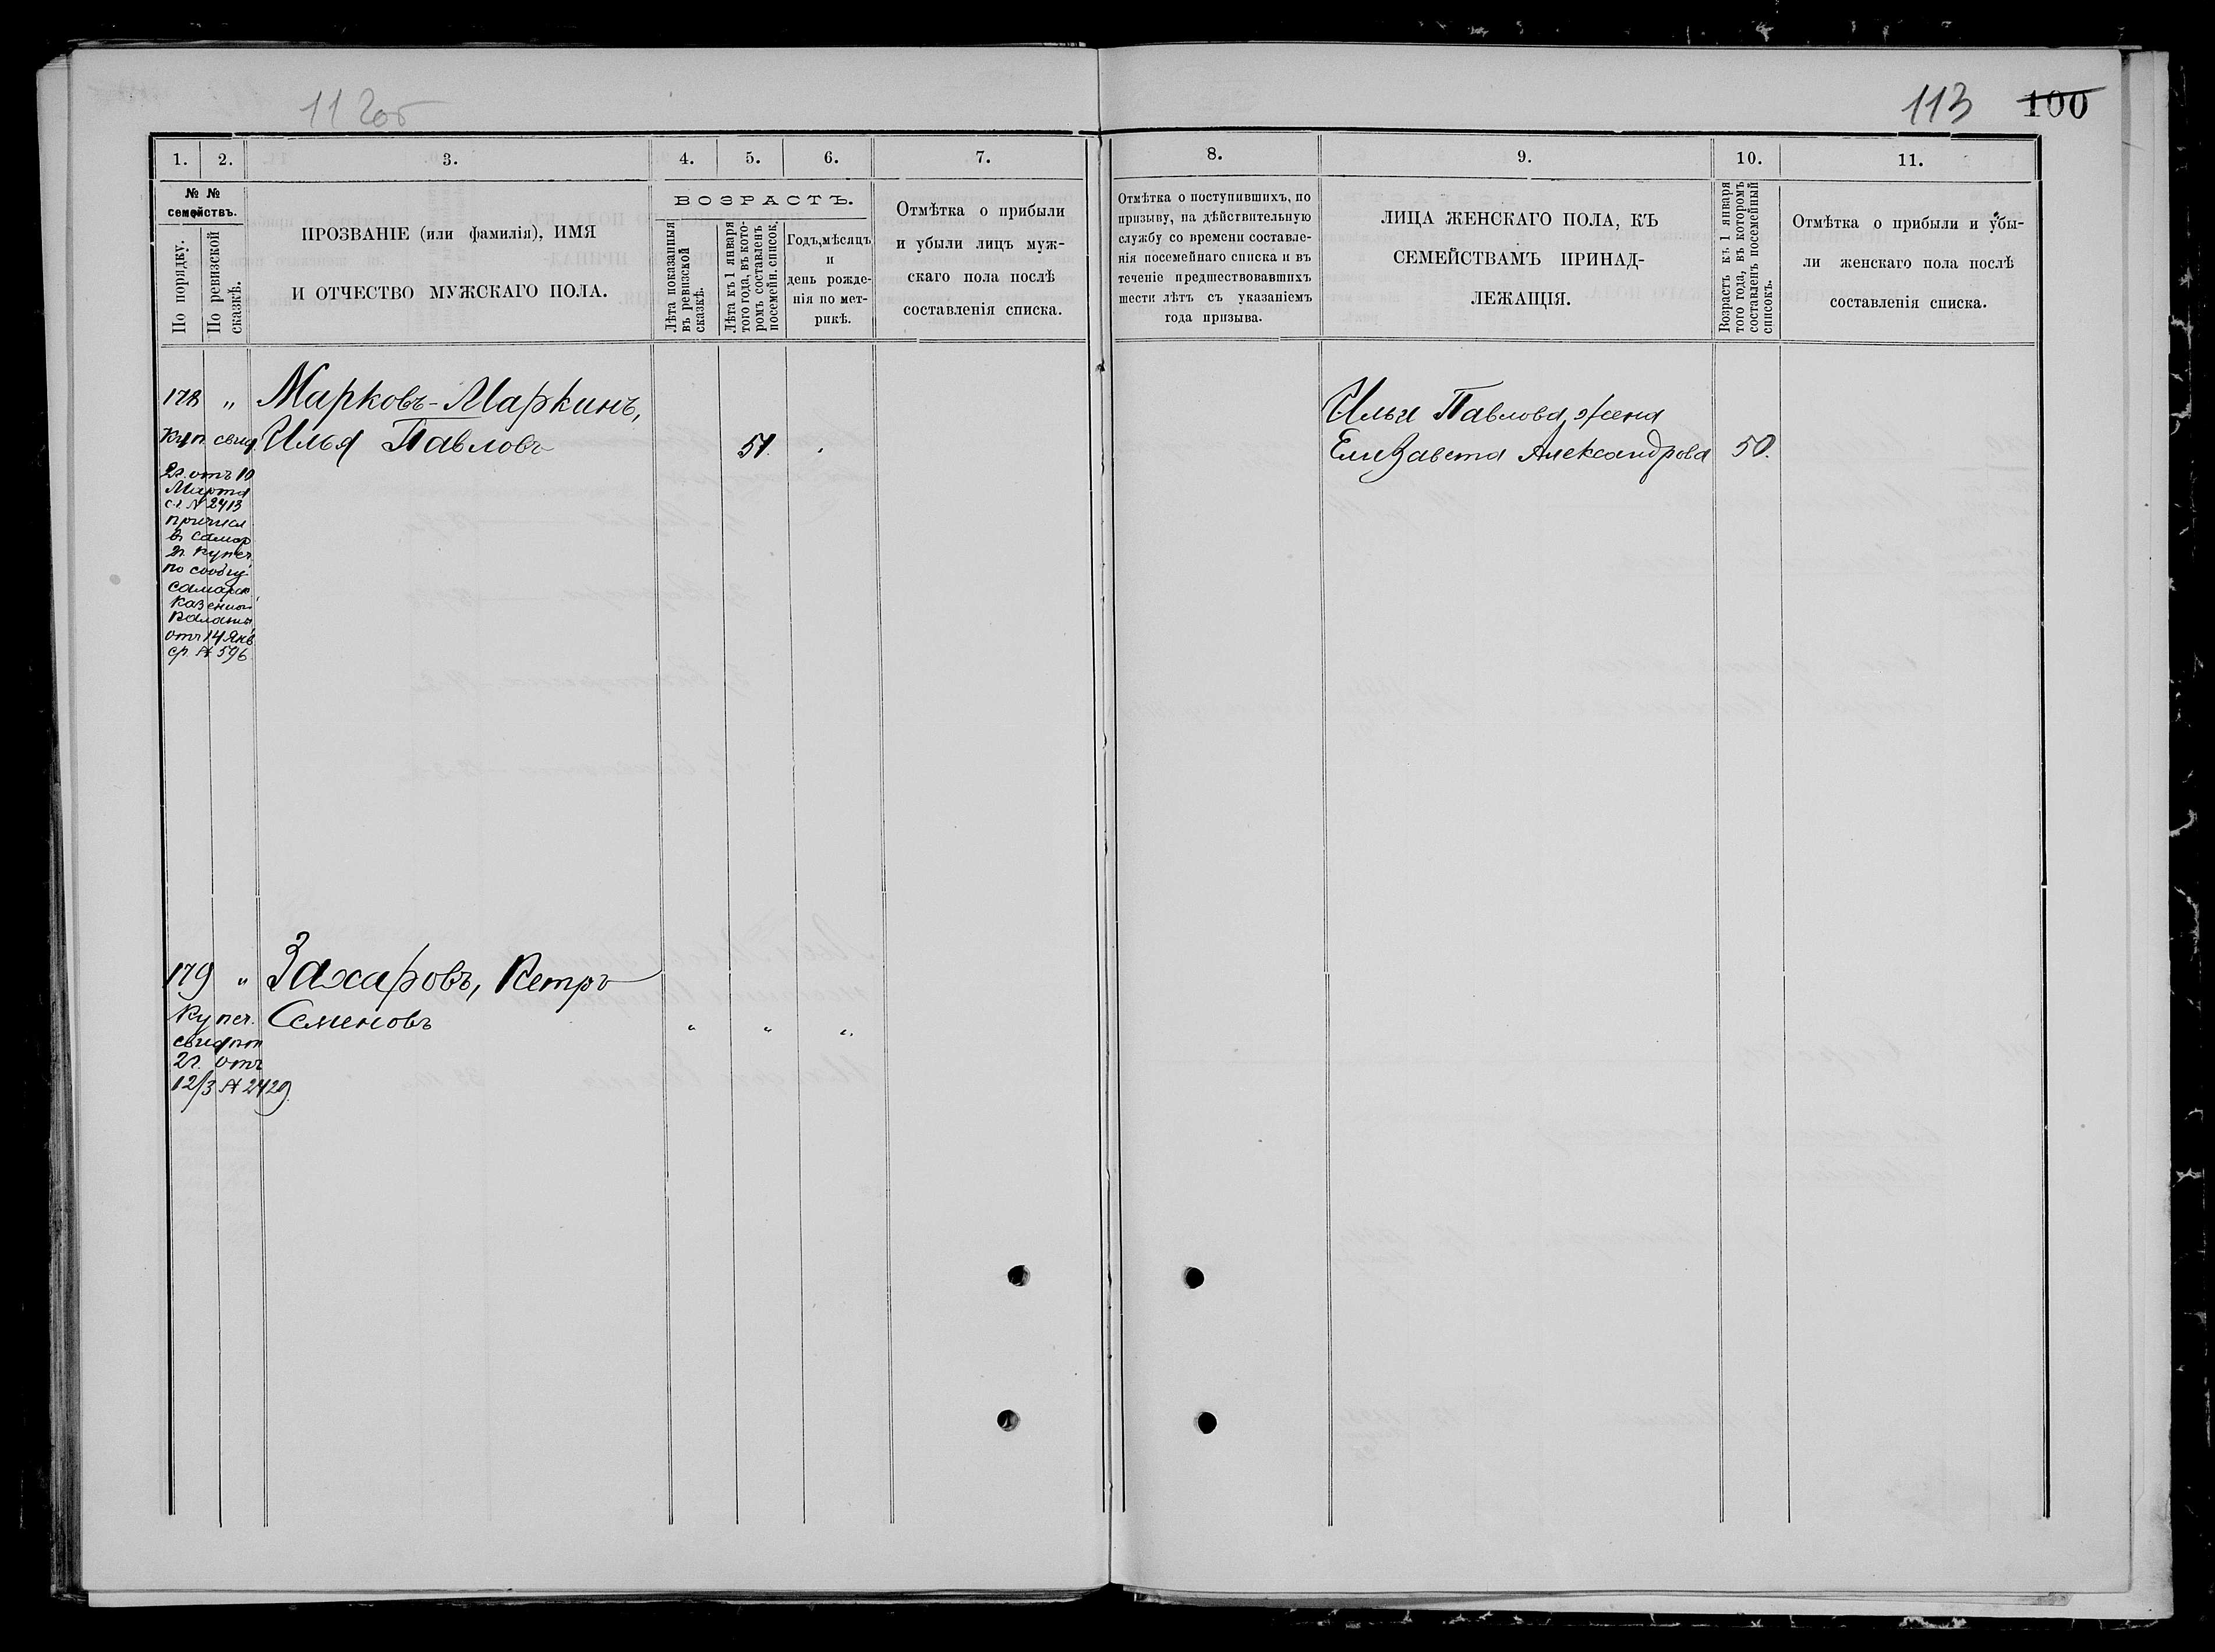 112об
113 100
1. 2. 3. 4. 5. 6. 7.
№ №
семействъ.
По порядку.
По ревизской
сказкѣ.
ПРОЗВАНІЕ (или фамилія), ИМЯ
И ОТЧЕСТВО МУЖСКАГО ПОЛА.
ВОЗРАСТЪ.
Лѣта показанныя
въ ревизской
сказкѣ.
Лѣта къ 1 января
того года, въ кото-
ромъ составленъ
посемейн. список.
Годъ, мѣсяцъ
и
день рожде-
нія по мет-
рикѣ.
Отмѣтка о прибыли
и убыли лицъ муж-
скаго пола послѣ
составленія списка.
178 „ Марковъ-Маркинъ,
Куп. свид. Илья Павловъ 51.
2г. отъ 10
Марта
с.г. № 2413
причисл
въ самар
2г. купеч.
по сообщ.
самарск
казенной
Палаты
отъ 14 Янв
ср. № 596
179 „ Захаровъ, Петръ
Купеч. Семеновъ „ „ „
свид
2г. отъ
12/3 № 2429.
8. 9. 10. 11.
Отмѣтка о поступившихъ, по
призыву, на дѣйствительную
службу со времени составле-
нія посемейнаго списка и въ
теченіе предшествовавшихъ
шести лѣтъ съ указаніемъ
года призыва.
ЛИЦА ЖЕНСКАГО ПОЛА, КЪ
СЕМЕЙСТВАМЪ ПРИНАД-
ЛЕЖАЩІЯ.
Возрастъ къ 1 января
того года, въ которомъ
составленъ посемейный
списокъ.
Отмѣтка о прибыли и убы-
ли женскаго пола послѣ
составленія списка.
Ильи Павлова жена
Елизавета Александрова 50.